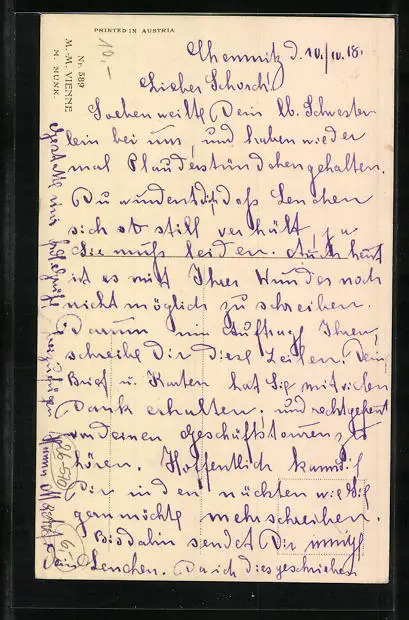 PRINTED IN AUSTRIA
Nr. 589
M. M. VIENNE
M. MUNK.
10.-
Chemnitz d. 10./IV. 18.
Lieber Schosch!
Soeben weilte Dein lb. Schwester
lein bei uns, und haben wieder
mal Plauderstündchen gehalten.
Du wunderst Dich, daß Lenchen
sich so still verhält, ja
Sie muß leiden. Auch heut
ist es mit Ihrer Wunde noch
nicht möglich zu schreiben.
Darum im Auftrag Ihrer,
schreibe Dir diese Zeilen. Dein
Brief u. Karten hat Sie mit vielen
Dank erhalten, und
von deinen Geschäftstouren zu
hören. Hoffentlich kann sich
Dir in den nächsten
ganz mehr schreiben.
Bis dahin sendet Dir innigst
Dein Lenchen. Da ich dies geschrieben
gestatte mir